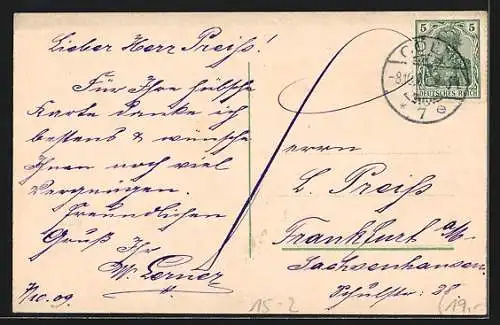 Lieber Herr Preiß!
Für Ihre hübsche
Karte danke ich
bestens & wünsche
Ihnen noch viel
Vergnügen.
Freundlichen
Gruß Ihr
W. Lerner
7/10.09.
5 5
DEUTSCHES REICH
CÖLN
-8.10.
* 7 e
Herrn
L. Preiß
Frankfurt a/M-
Sachsenhausen
Schulstr. 28
15-2
(19,-